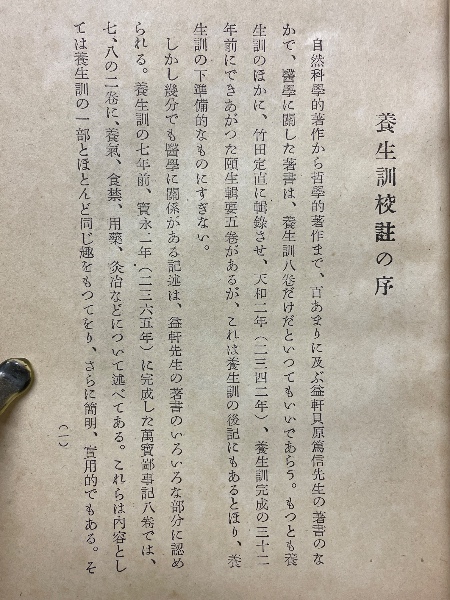 養生訓校註の序
自然科學的著作から哲學的著作まで、百あまりに及ぶ益軒貝原篤信先生の著書のな
かで、醫學に關した著書は、養生訓八卷だけだといつてもいいであらう。もつとも養
生訓のほかに、竹田定直に輯錄させ、天和二年(二三四二年)、養生訓完成の三十二
年前にできあがつた頤生輯要五卷があるが、これは養生訓の後記にもあるとほり、養
生訓の下準備的なものにすぎない。
しかし幾分でも醫學に關係がある記述は、益軒先生の著書のいろいろな部分に認め
られる。養生訓の七年前、寶永二年(二三六五年)に完成した萬寶鄙事記八卷では、
七、八の二卷に、養氣、食禁、用藥、灸治などについて述べてある。これらは內容とし
ては養生訓の一部とほとんど同じ趣をもつてをり、さらに簡明、實用的でもある。そ
(一)